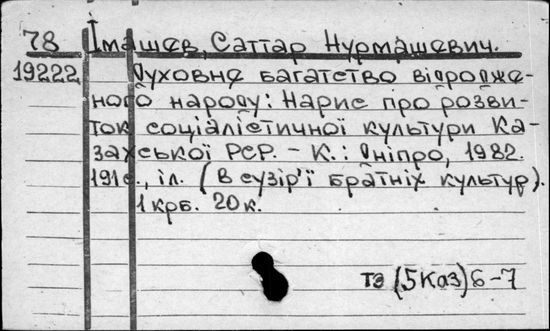 78 Імашев, Саттар Нурмашевич.
19222 Духовне багатство відродже-
ного народу: Нарис про розви-
ток соціалістичної культури Ка-
захської РСР. – К.: Дніпро, 1982.
191с., іл. (В сузір'ї братніх культур).
1 крб. 20 к.
тз (5Каз)6-7